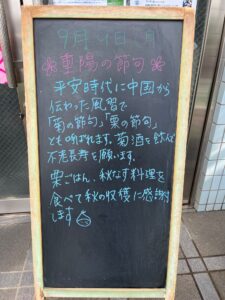 9月9日 月
重陽の節句
平安時代に中国から
伝わった風習で
「菊の節句」「栗の節句」
とも呼ばれます。菊酒を飲んで
不老長寿を願います。
栗ごはん、秋なす料理を
食べて秋の収穫に感謝
します